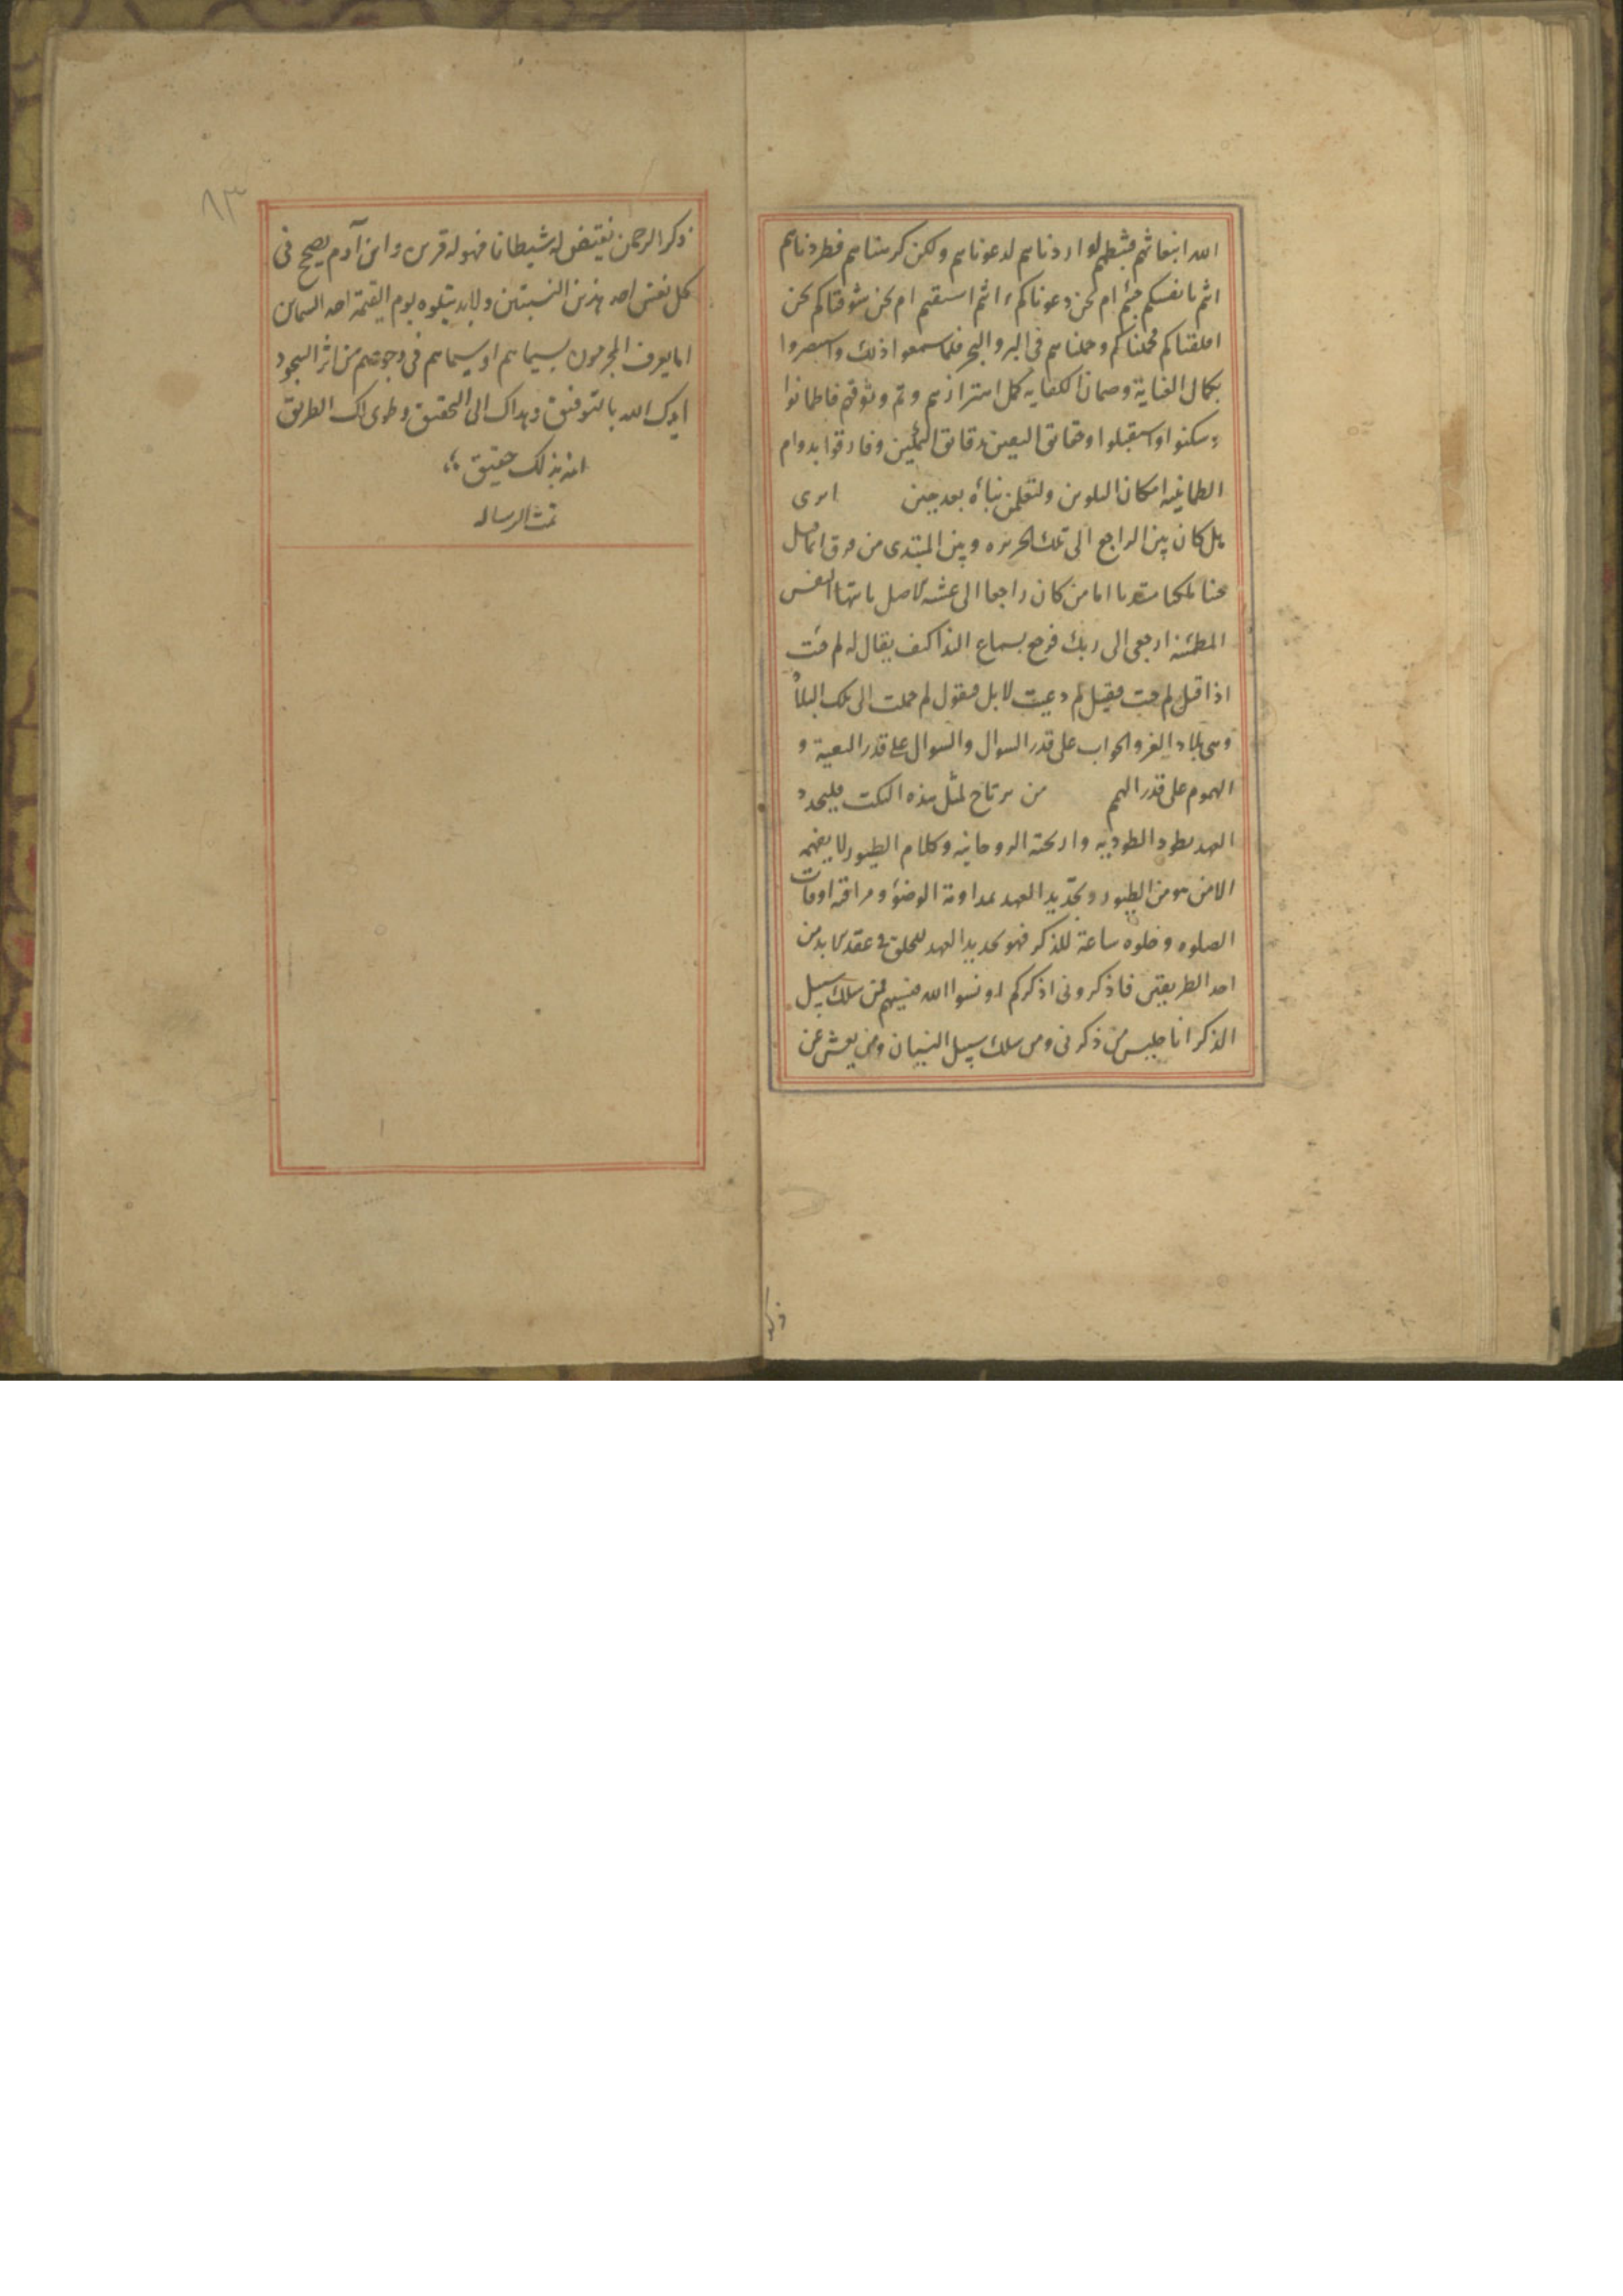 الله انبعاثهم فثبطهم لو اردناهم لدعوناهم ولكن كرهناهم فطردناهم
انتم بانفسكم جئتم ام نحن دعوناكم انتم اشتقتم ام نحن شوقناكم نحن
اقلقناكم فحملناكم وحملناهم فى البر والبحر فلما سمعوا ذلك واستبصروا
بكمال العناية وضمان الكفاية كمل اهتزازهم وتم وثوقهم فاطمانوا
وسكنوا واستقبلوا حقائق اليقين بدقائق التمكين وفارقوا بدوام
الطمانينه امكان التلوين ولتعلمن نباه بعد حين اترى
هل كان بين الراجع الى تلك الجزيره وبين المبتدى من فرق انما قال
جئنا ملكنا مبتديا اما من كان راجعا الى عشه الاصل يا ايتها النفس
المطمئنه ارجعى الى ربك فرجع لسماع الندا كيف يقال له لم جئت
اذا قيل لم جئت فيقول لم دعيت لا بل فيقول لم حملت الى تلك البلاد
وهى بلاد القربه والجواب على قدر السوال والسوال على قدر
الهموم على قدر الهمم من يرتاح لمثل هذه النكت فليجدد
العهد بطور الطيريه واريحيته الروحانيه وكلام الطيور لا يفهمه
الا من هو من الطيور وتجديد العهد بمداومة الوضوء ومراقبه اوقات
الصلوه وخلوه ساعة للذكر فهو تجديد العهد لابد من
احد الطريقين فاذكرونى اذكركم او نسوا الله فنسيهم فمن سلك سبيل
الذكر انا جليس من ذكرنى ومن سلك سبيل النسيان ومن يعش عن
ذكر
٨٣
ذكر الرحمن نقيض له شيطانا فهو له قرين وابن آدم يصحح فى
كل نفس احد هذين النسبتين ولابد يتلوه يوم القيمة احد السيماين
اما يعرف المجرمون بسيماهم او سيماهم فى وجوههم من اثر السجود
ايدك الله بالتوفيق وهداك الى التحقيق وطوى لك الطريق
انه بذلك حقيق
تمت الرساله